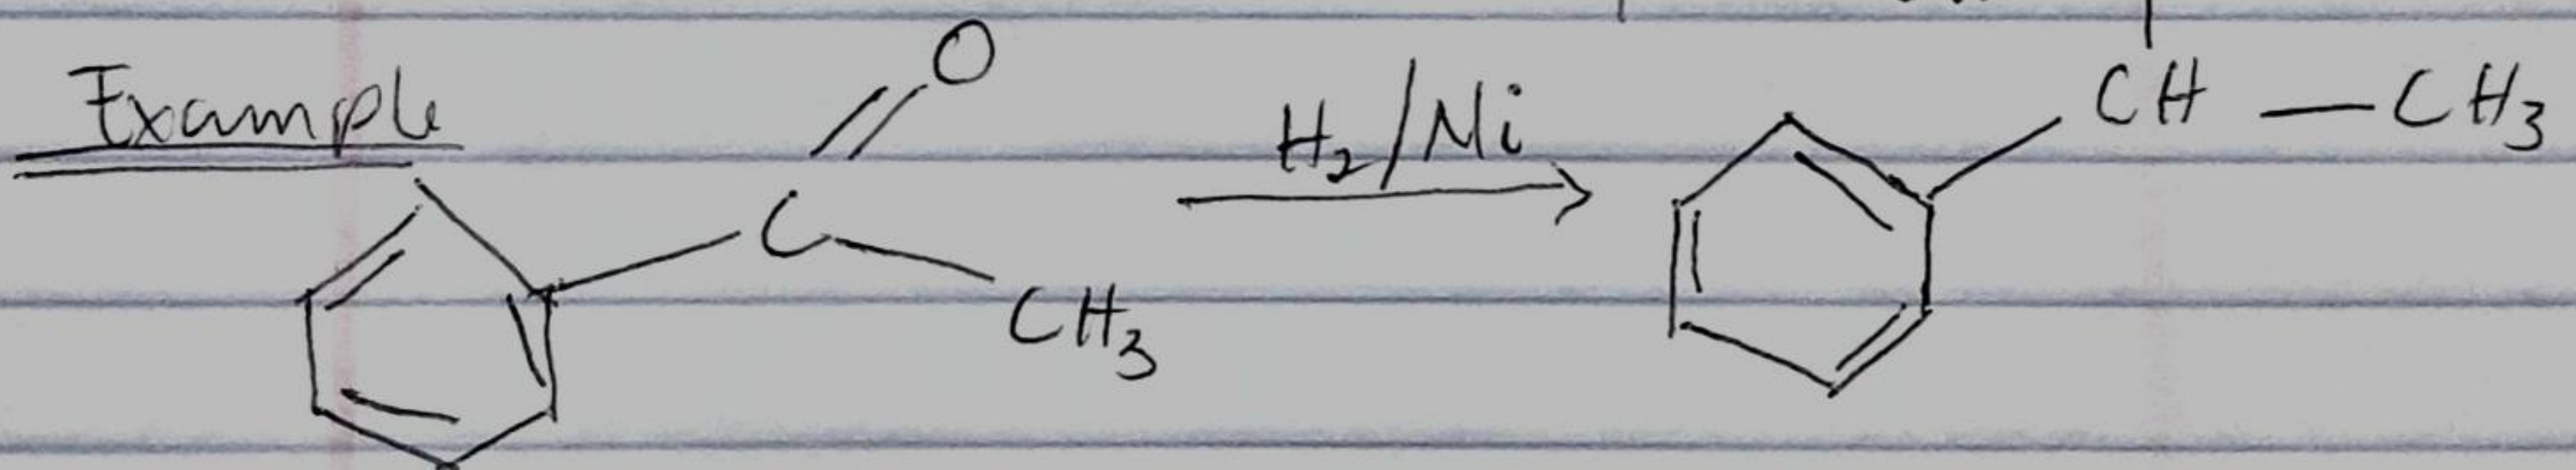 Example
O
C
CH3
H2/Ni
CH — CH3